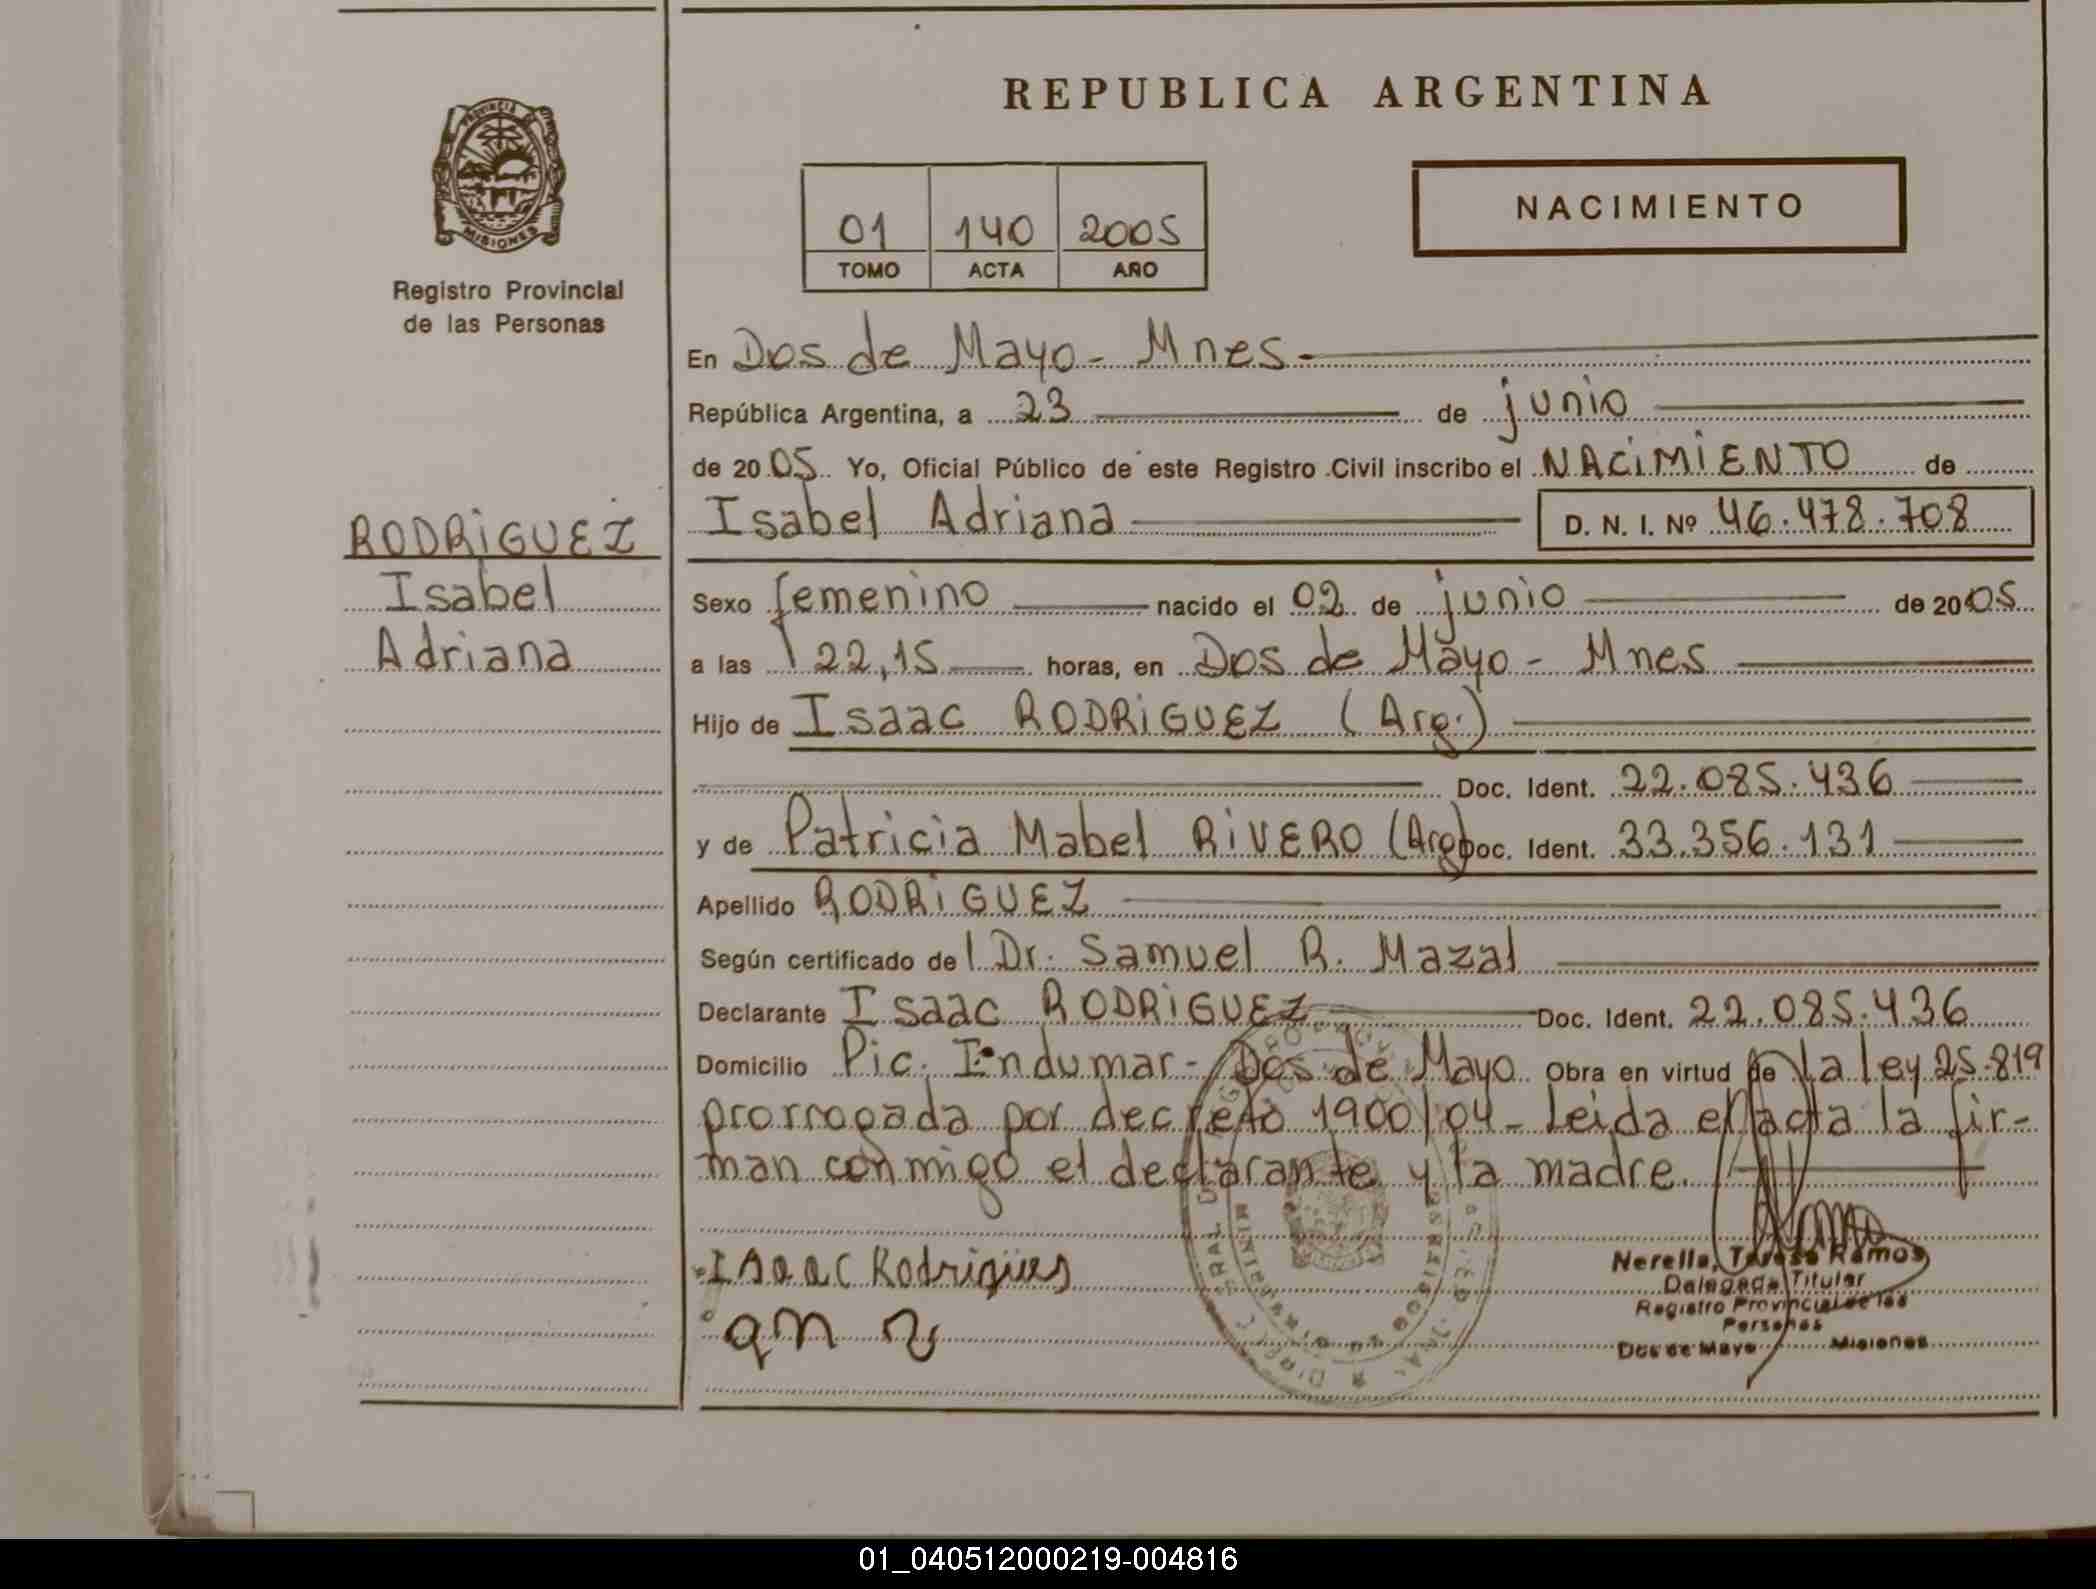 REPUBLICA ARGENTINA
PROVINCIA DE
MISIONES
Registro Provincial
de las Personas
01 140 2005
TOMO ACTA AÑO
NACIMIENTO
En Dos de Mayo - Mnes -
República Argentina, a 23 de junio
de 2005 Yo, Oficial Público de este Registro Civil inscribo el NACiMiENTO de
Isabel Adriana D. N. I. Nº 46.478.708
RODRiGUEZ
Isabel
Adriana
Sexo femenino nacido el 02 de junio de 2005
a las 22,15 horas, en Dos de Mayo - Mnes
Hijo de Isaac RODRiGUEZ (Arg.)
Doc. Ident. 22.085.436
y de Patricia Mabel RiVERO (Arg) Doc. Ident. 33.356.131
Apellido RODRiGUEZ
Según certificado de Dr. Samuel R. Mazal
Declarante Isaac RODRiGUEZ Doc. Ident. 22.085.436
Domicilio Pic. Indumar - Dos de Mayo Obra en virtud de la ley 25.819
prorrogada por decreto 1900/04 - Leida el acta la fir-
man conmigo el declarante y la madre.
ISaac Rodrigues
Nerella, Teresa Ramos
Delegada Titular
Registro Provincial de las
Personas
Dos de Mayo Misiones
01_040512000219-004816